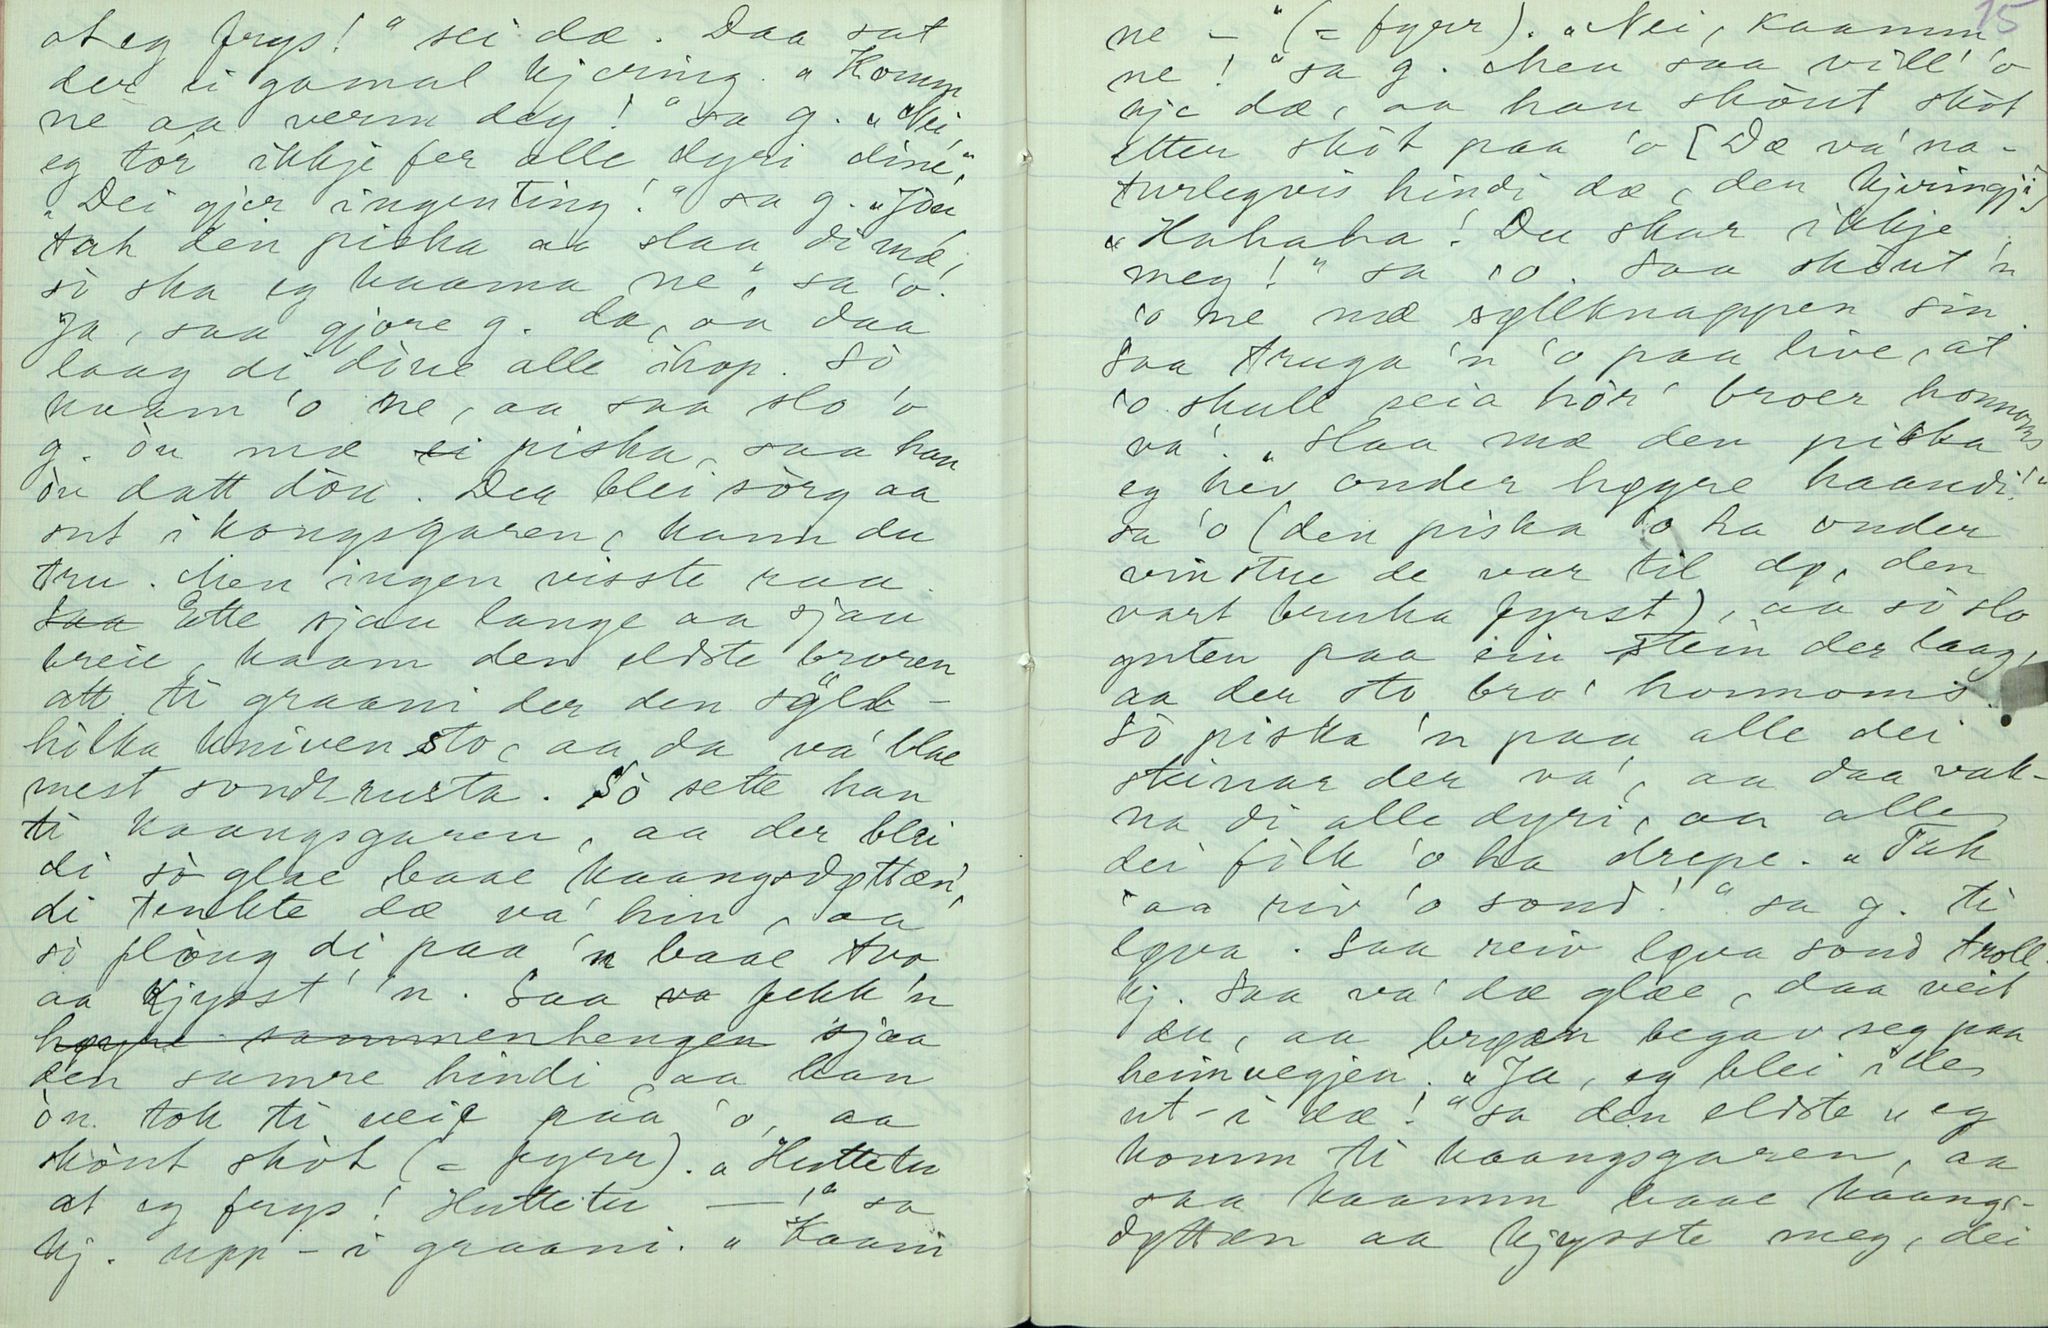 at eg frys!" sei dæ. Daa sat
der ei gamal kjering. "Komm
ne aa verm deg!" sa g. "Nei,
eg tor ikkje fer alle dyri dine."
"Dei gjer ingenting!" sa g. "Jou
tak den piska aa slaa di mæ,
so ska eg kaama ne", sa 'o.
Ja, saa gjore g. da, aa daa
laag di döue alle ihop. So
kaam 'o ne, aa saa slo 'o
g. òu mæ ei piska, saa han
òu datt döu. Dea blei sorg aa
sut i kongsgaren, kann du
tru. Men ingen visste raa.
saa Ette sjau lange aa sjau
breie, kaam den eldste broren
att ti graani der den sylv-
hilka kniven sto, aa da va' blae
mest sond-rusta. So sette han
ti kaangsgaren, aa der blei
di so glae baae kaangsdøttan,
di tenkte dæ va' hin, aa
so flòug di paa 'n baae tvo
aa kjysst' 'n. Saa va fekk 'n
høyre sammenhengen sjaa
den samre hindi, aa han
òu tok ti veie paa 'o, aa
skòut skòt (= fyrr). "Huttetu
at eg frys! Huttetu —!" sa
kj. upp-i graani. "Kaam
15
ne –" (= fyrr). "Nei, kaamm
ne!" sa g. Men saa vill' 'o
kje dæ, aa han skòut skòt
etter skòt paa 'o [Dæ va' na-
turlegvis hindi dæ, den kjeringji]
"Hahaha! Du skar ikkje
meg!" sa 'o. Saa skòut 'n
'o ne mæ syllknappen sin.
Saa truga 'n 'o paa live, at
'o skull seia hór' broer honnoms
va'. "Slaa mæ den piska
eg hev onder høgre haandi!"
sa 'o (den piska 'o ha onder
vinstre de var til dø, den
vart bruka fyrst), aa so slo
guten paa ein stein der laag,
aa der sto bro' honnoms.
So piska 'n paa alle dei
steinar der va', aa daa vak-
na di alle dyri, aa alle
dei folk 'o ha drepe. "Tak
aa riv 'o sond!" sa g. ti
løva. Saa reiv løva sond troll-
kj. Saa va' dæ glæe, daa veit
du, aa brøan begav seg paa
heimvegjen. "Ja, eg blei ille
ut-i dæ!" sa den eldste "eg
komm ti kaangsgaren, aa
saa kaamm baae kaangs-
døttan aa kjysste meg, dei